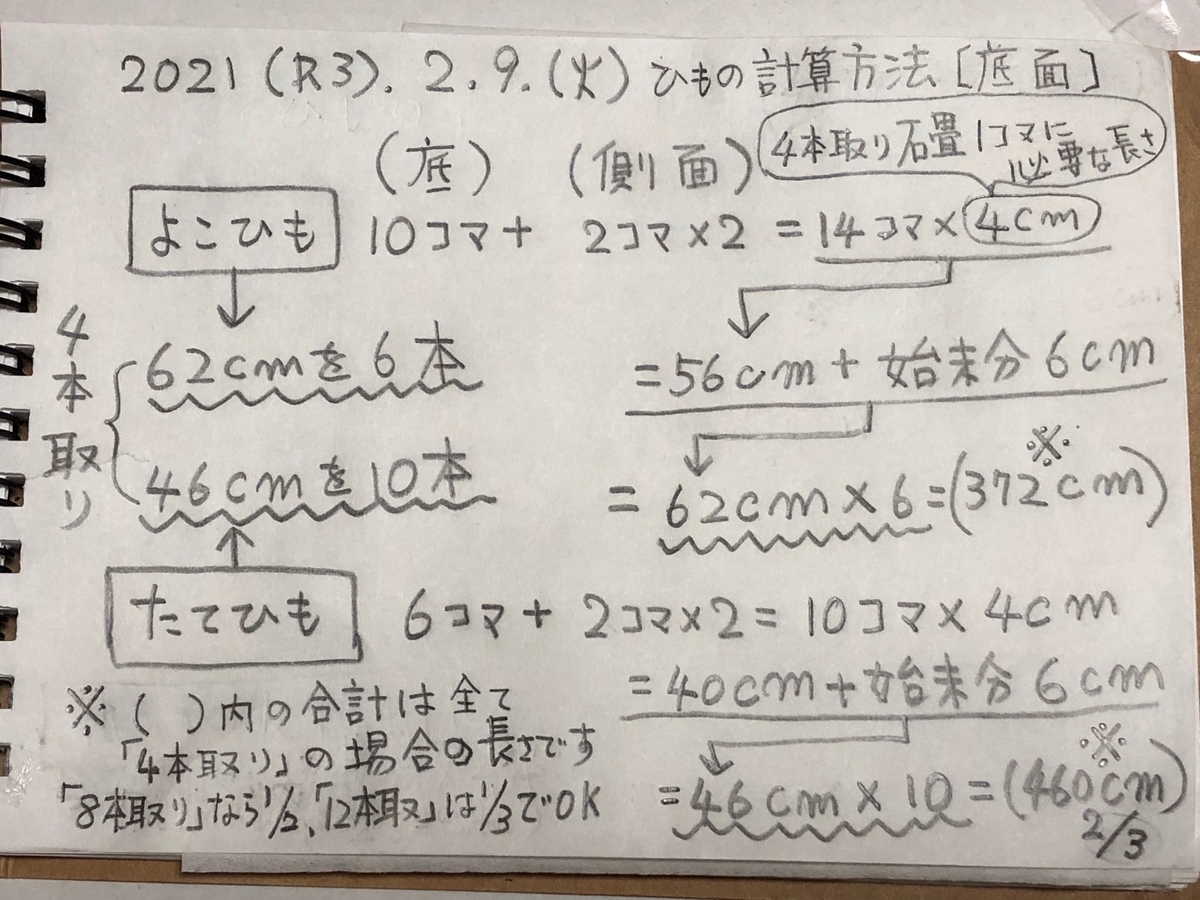 2021(R3).2.9.(火)ひもの計算方法[底面]
4本取り石畳1コマに
必要な長さ
(底) (側面)
よこひも 10コマ+ 2コマ×2 =14コマ×4cm
4本取り
62cmを6本 =56cm+始末分6cm
※
46cmを10本 =62cm×6=(372cm)
たてひも 6コマ+2コマ×2=10コマ×4cm
=40cm+始末分6cm
※
=46cm×10=(460cm)
※( )内の合計は全て
「4本取り」の場合の長さです
「8本取り」なら1/2、「12本取」は1/3でOK
2/3